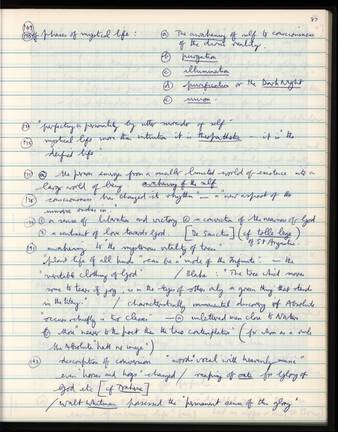 87
(169) 5 phases of mystical life : (a) The awakening of self to consciousness
of the divine reality.
(b) purgation
(c) illumination
(d) purification or the Dark Night
(e) union.
"perfecting a personality by utter surrender of self"
mystical life more than intuition it is theopathetic - it is "the
deified life"
the person emerges from a smaller limited world of existence into a
larger world of being awakening of the self
consciousness has changed its rhythm — a new aspect of the
universe rushes in.
(1) a sense of liberation and victory (2) a conviction of the nearness of God
(3) a sentiment of love towards God. [De Sanctis] (cf tolle lege
of St Augustine.
awakening to the mysterious vitality of trees
"plant life of all kinds" can be a "mode of the Infinite" — the
"vegetable clothing of God" / Blake : "The tree which moves
some to tears of joy, is in the eyes of others only a green thing that stands
in the Way." / characteristically immanental discovery of Absolute
occurs chiefly in two classes — (a) unlettered men close to Nature
(b) those "nearer to the poet than the true contemplative" (for whom as a rule
the Absolute "hath no image")
description of conversion "woods vocal with heavenly music"
even "horses and hogs" changed / reaping of oats for glory of
God etc [cf Traherne]
/ Walt Whitman possessed the "permanent sense of this glory"